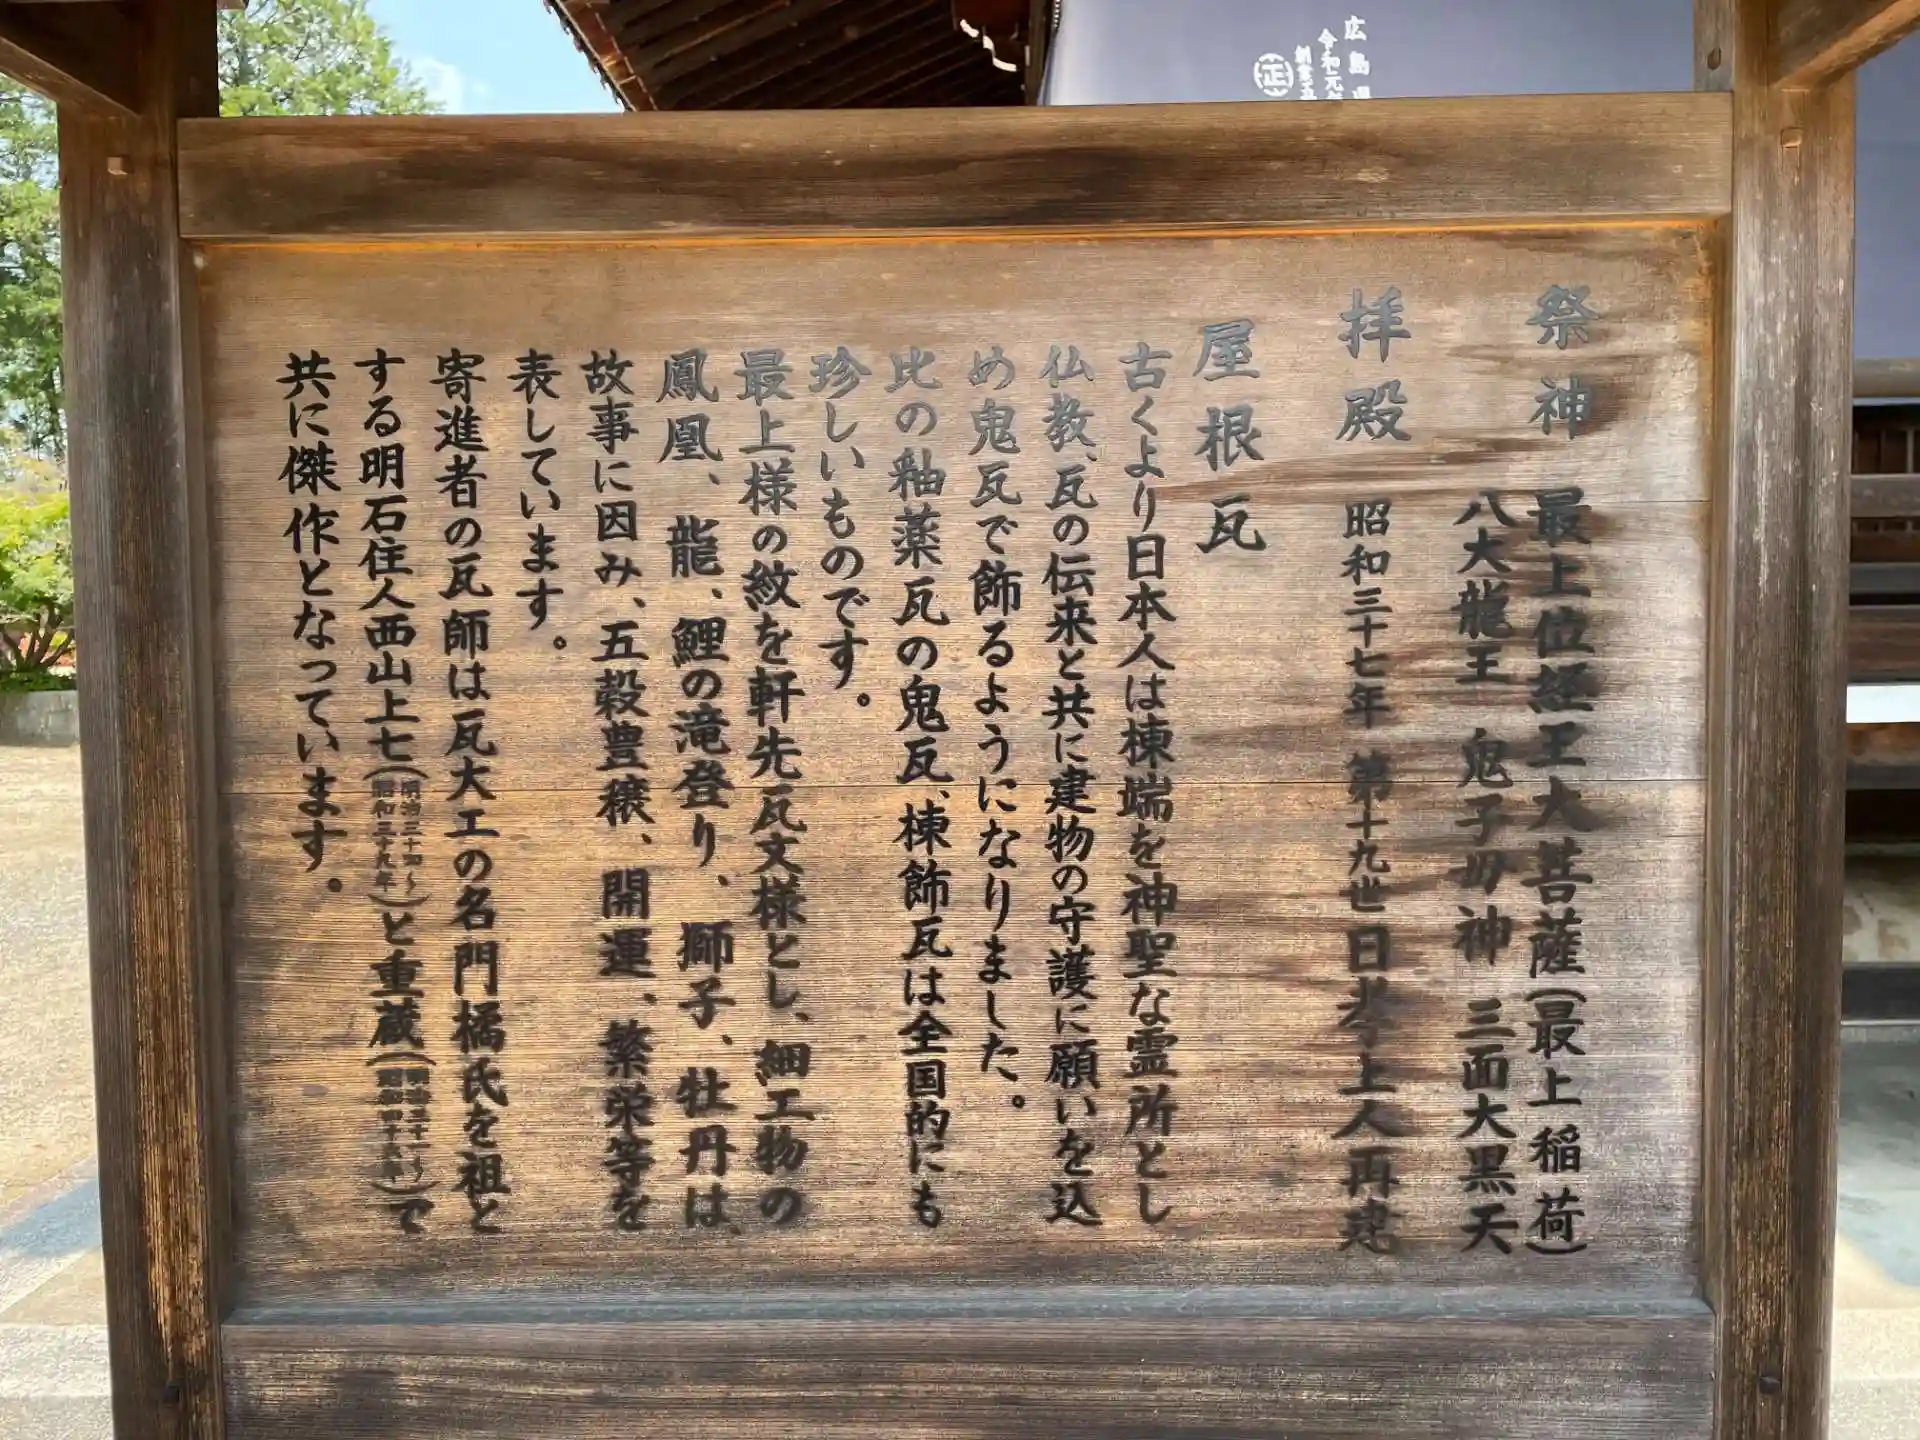 広島県
令和元年
正
祭神 最上位経王大菩薩(最上稲荷)
八大龍王 鬼子母神 三面大黒天
拝殿 昭和三十七年 第十九世日孝上人再建
屋根瓦
古くより日本人は棟端を神聖な霊所とし
仏教、瓦の伝来と共に建物の守護に願いを込
め鬼瓦で飾るようになりました。
比の釉薬瓦の鬼瓦、棟飾瓦は全国的にも
珍しいものです。
最上様の紋を軒先瓦文様とし、細工物の
鳳凰、龍、鯉の滝登り、獅子、牡丹は、
故事に因み、五穀豊穣、開運、繁栄等を
表しています。
寄進者の瓦師は瓦大工の名門橘氏を祖と
する明石住人西山上七(
昭和三十九年)と重蔵(
)で
共に傑作となっています。